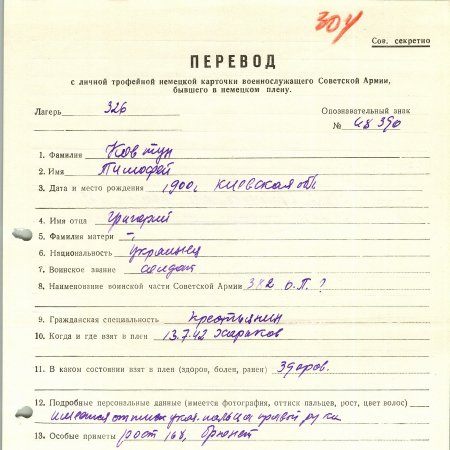 304
Сов. секретно
ПЕРЕВОД
с личной трофейной немецкой карточки военнослужащего Советской Армии,
бывшего в немецком плену.
Лагерь 326
Опознавательный знак
№ 48390
1. Фамилия Ковтун
2. Имя Тимофей
3. Дата и место рождения 1900, Киевская обл
4. Имя отца Григорий
5. Фамилия матери -
6. Национальность украинец
7. Воинское звание солдат
8. Наименование воинской части Советской Армии 382 о.П.?
9. Гражданская специальность крестьянин
10. Когда и где взят в плен 13.7.42 Харьков
11. В каком состоянии взят в плен (здоров, болен, ранен) Здоров.
12. Подробные персональные данные (имеется фотография, оттиск пальцев, рост, цвет волос)
имеется оттиск указ. пальца правой руки
13. Особые приметы рост 168, брюнет